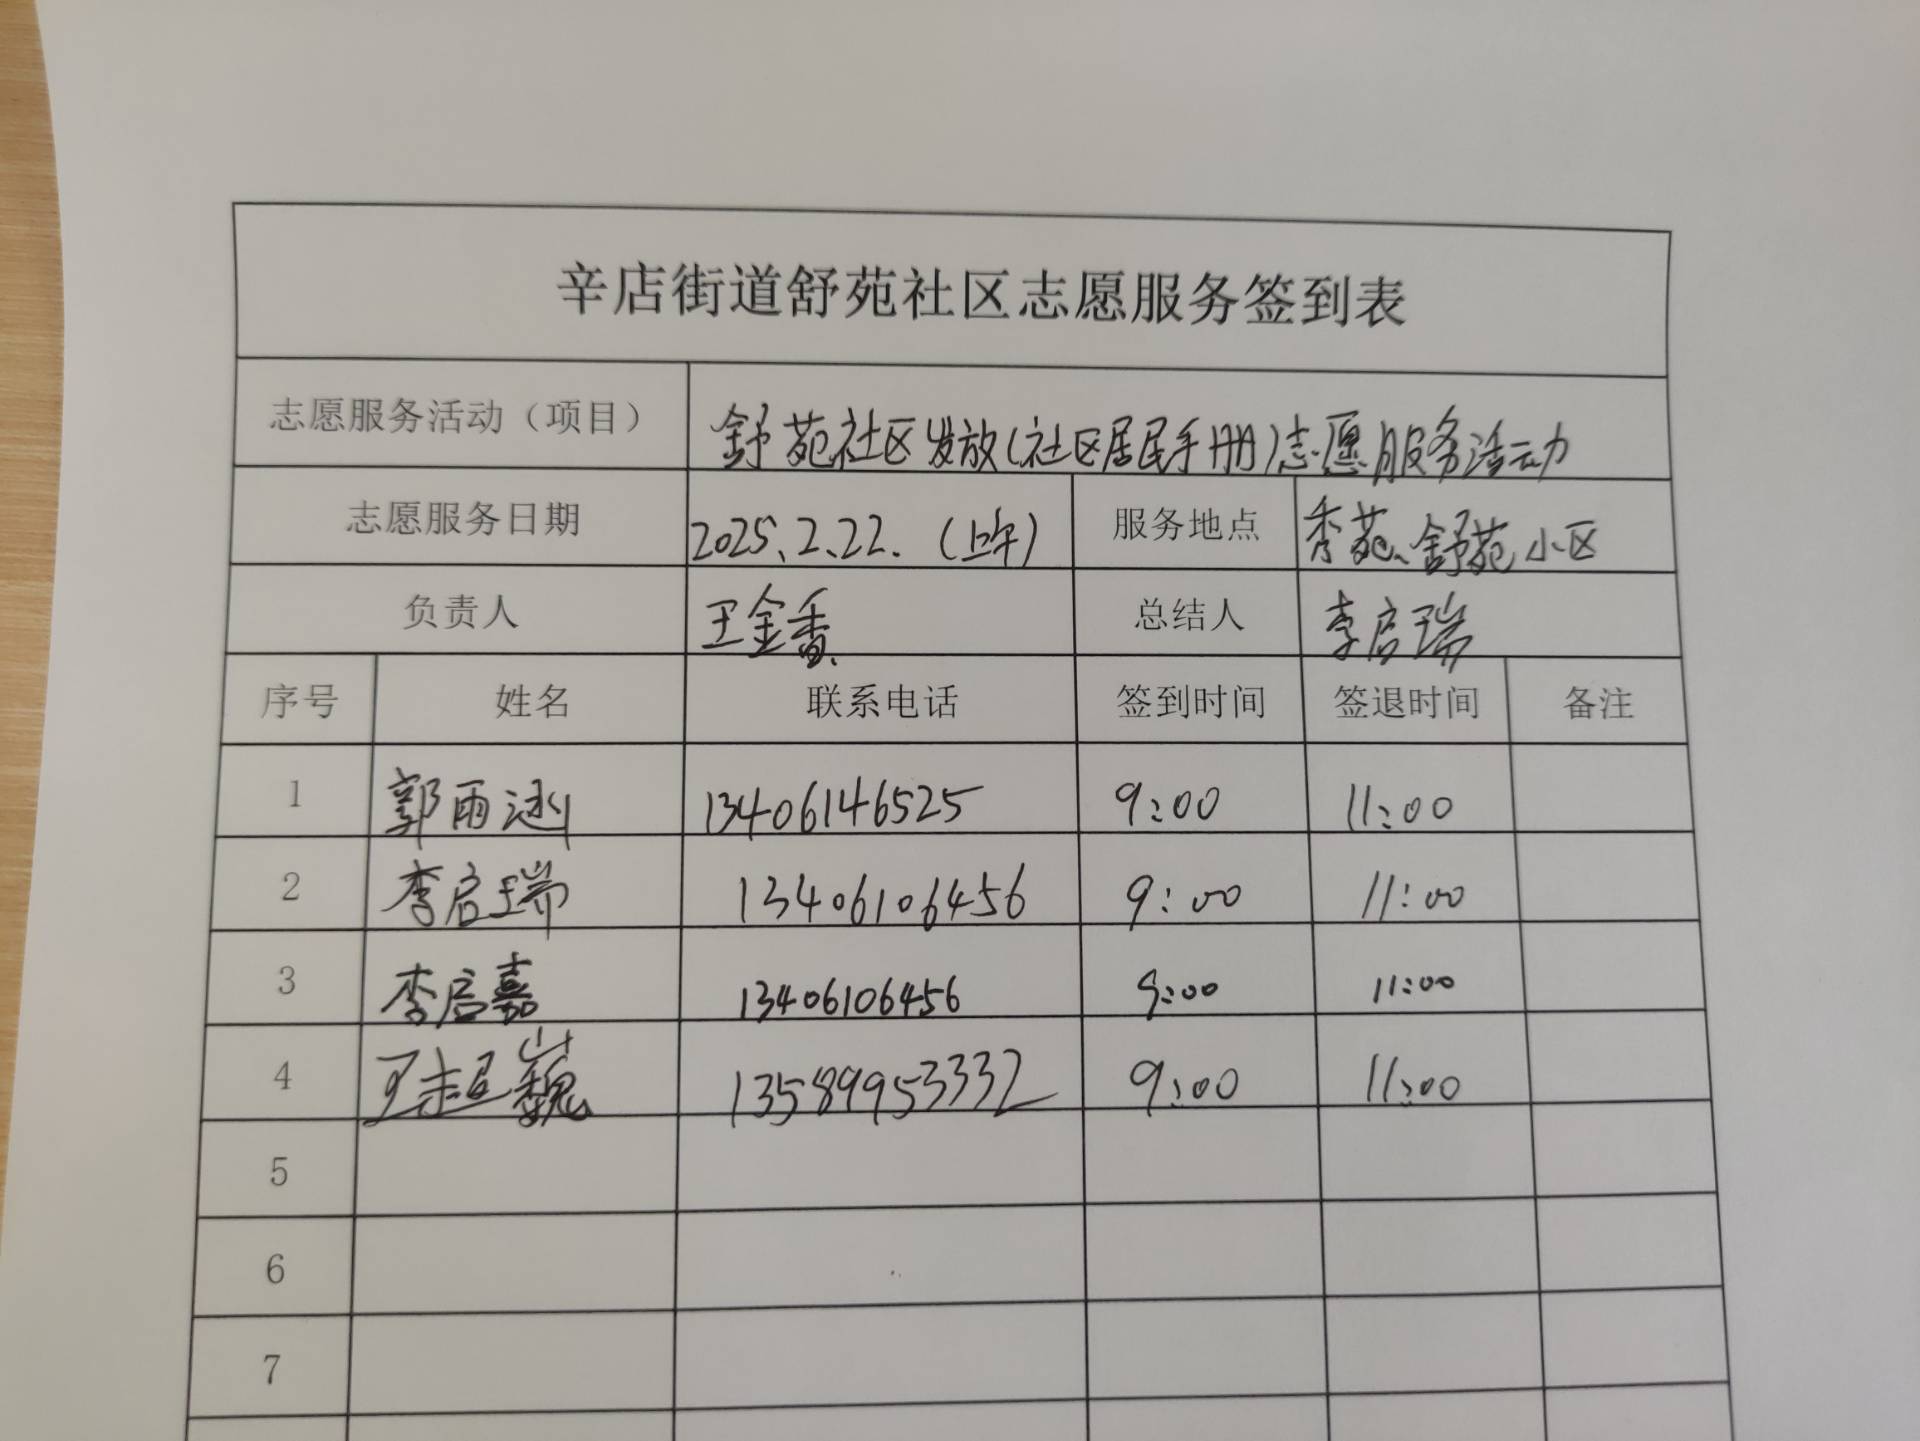 辛店街道舒苑社区志愿服务签到表
志愿服务活动（项目） 舒苑社区发放(社区居民手册)志愿服务活动
志愿服务日期 2025.2.22.（上午） 服务地点 秀苑、舒苑小区
负责人 王金香 总结人 李启瑞
序号 姓名 联系电话 签到时间 签退时间 备注
1 郭雨涵 13406146525 9:00 11:00
2 李启瑞 13406106456 9:00 11:00
3 李启嘉 13406106456 9:00 11:00
4 王超巍 13589953332 9:00 11:00
5
6
7